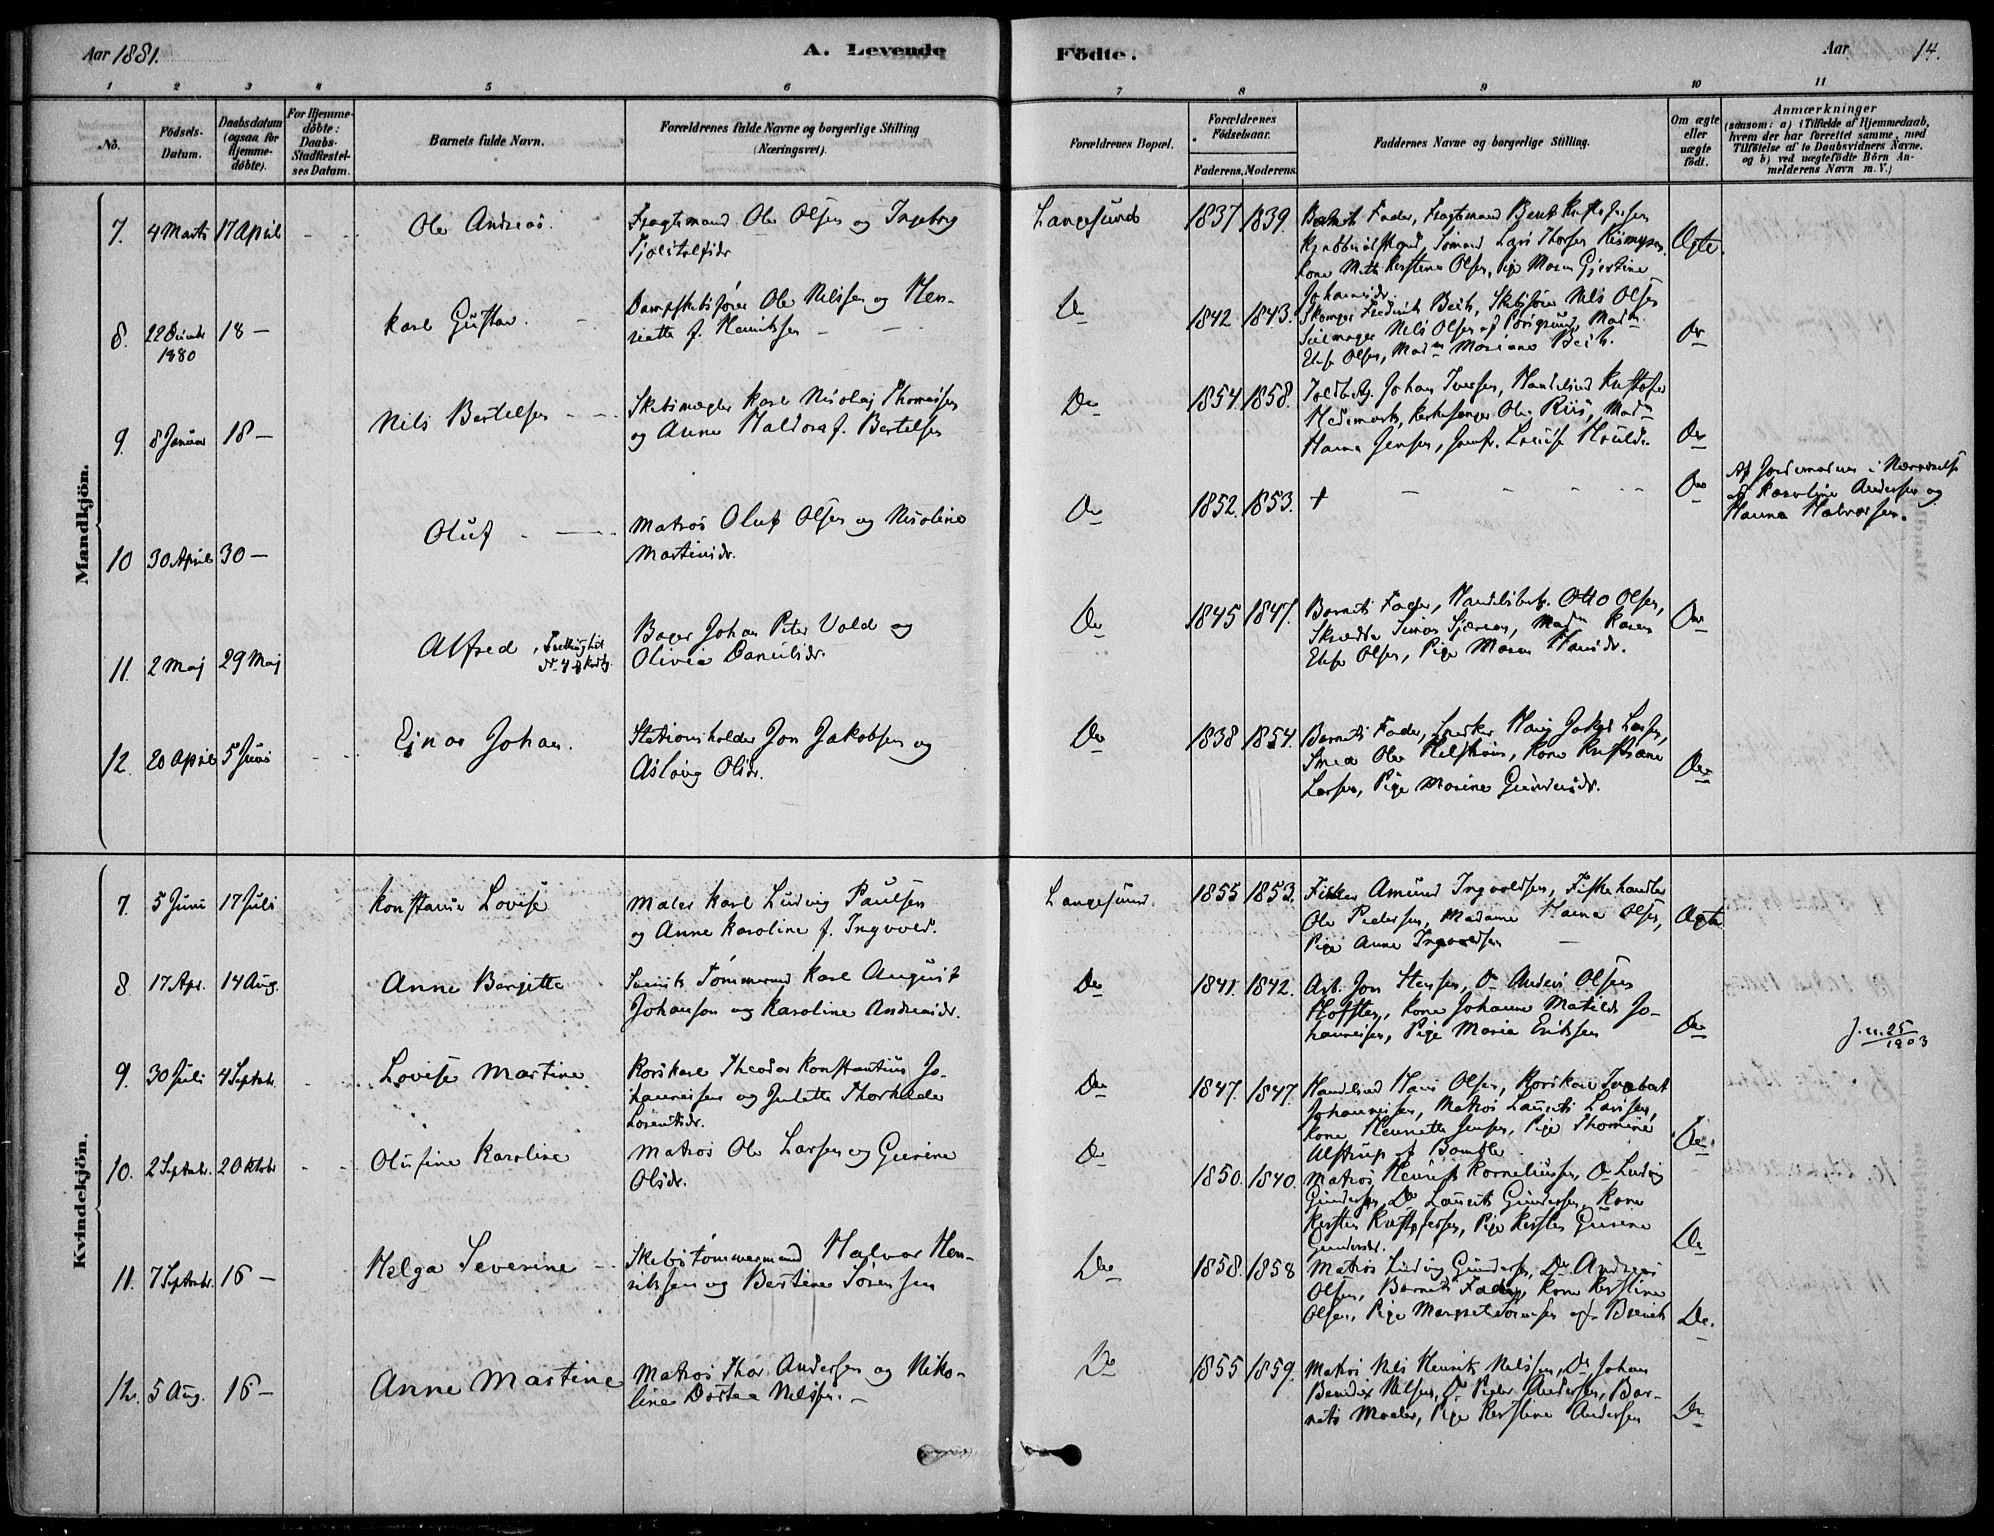 Aar 1881.
A. Levende
Födte.
Aar
14.
1 2 3 4 5 6 7 8 9 10 11
No.
Födsels-
Datum.
Daabsdatum
(ogsaa for
Hjemme-
döbte).
For Hjemme-
döbte:
Daabs-
Stadfæstel-
ses Datum.
Barnets fulde Navn.
Forældrenes fulde Navne og borgerlige Stilling
(Næringsvei).
Forældrenes Bopæl.
Forældrenes
Födselsaar.
Faderens. Moderens.
Faddernes Navne og borgerlige Stilling.
Om ægte
eller
uægte
födt.
Anmærkninger
(saasom: a) i Tilfælde af Hjemmedaab,
hvem der har forrettet samme, med
Tilföielse af to Daabsvidners Navne.
og b) ved uægtefödte Börn An-
melderens Navn m. V.)
Mandkjön.
7. 4 Marts 17 April
Ole Andreas.
Fragtemand Ole Olsen og Ingeborg
Langesund
1837 1839.
Barnets Fader, Fragtmand Bent
Sömand Lars Thorsen
Kone Olsen, Pige Maren Gjestine
Johannesdr.
Ægte.
8. 22
1880
18 —
Karl Gustav.
Dampskibsförer Ole Nilssen og Hen-
riette f. Henriksen
Do
1842 1843.
Frederik Beck, Skibsförer Nils Olsen
Seilmager Nils Olsen af Porsgrund, Madm
Olsen, Madm Mariane Beck.
Do
9. 8 Januar 18 —
Nils Bertelsen
Skibsmægler Karl Nicolaj Thomassen
og Anne Haldora f. Bertelsen
Do
1854. 1858.
Johan Iversen, Handelsmd Kristofer
Hedemark, Kirkesanger Ole Riis, Madm
Hanna Jensen, Jomfr. Lovise
Do
10 30 April 30 —
Oluf
Matros Oluf Olsen og Nicoline
Martinsdr.
Do
1852. 1853.
+
Do
Af Jordemoderen i Nærværelse
af Karoline Andersen og
Hanna Halvorsen.
11. 2 Maj 29 Maj
Alfred
Bager Johan Peter Vold og
Olivia Danielsdr.
Do
1845 1847.
Barnets Fader, Handelsbetj. Otto Olsen,
Skrædder Simon Madm Karen
Else Olsen, Pige Maren Hansdr.
Do
12. 20 April 5 Juni
Ejnar Johan.
Stationsholder Jon Jakobsen og
Aslaug Olsdr.
Do
1838 1854.
Barnets Fader, Hans Jakob Larsen,
Smed Ole Kone Kristiane
Larsen, Pige Marine Gundersdr.
Do
Kvindekjön.
7. 5 Juni 17 Juli
Konstanse Lovise
Maler Karl Ludvig Paulsen
og Anne Karoline f. Ingvold.
Langesund.
1855 1853.
Fisker Amund Ingvoldsen, Fiskehandler
Ole Pedersen, Madame Hanna Olsen,
Pige Anne Ingvoldsen
Ægte
8 17 Apr. 14 Aug.
Anne Bergitte
Svensk Tømmermd Karl August
Johanson og Karoline Andreasdr.
Do
1841. 1842.
Arb. Jon Stensen, Do Anders Olsen
Kone Johanne Matilde Jo-
hannesen, Pige Maria Eriksen
Do
J. n. 25
1903
9. 30 Juli 4 Septbr.
Lovise Martine
Theodor Konstantius Jo-
hannesen og Julette Thorhilda
Lorentsdr.
Do
1847. 1847.
Handelsmd Hans Olsen,
Johannesen, Matros Laurits Larsen,
Kone Henriette Jensen, Pige Thomine
Alstrup af Bamble
Do
10. 2 Septbr. 2 Oktober
Olufine Karoline
Matros Ole Larsen og Gurine
Olsdr.
Do
1850. 1840.
Matros Henrik Korneliussen, Do Ludvig
Gundersen, Do Laurits Gundersen, Kone
Kirsten Kristofersen, Pige Kirsten Gurine
Gundersdr.
Do
11. 7 Septbr. 16 —
Helga Severine
Skibstømmermand Halvor Hen-
riksen og Bertine Sörensen
Do
1858. 1858
Matros Ludvig Gundersen, Do Andreas
Olsen, Barnets Fader, Kone Kirstine
Olsen, Pige Margret Sörensen af Brevik
Do.
12. 5 Aug. 16 —
Anne Martine
Matros Thor Andersen og Niko-
line Dortea Nilsen. —
Do
1855 1859.
Matros Nils Henrik Nilssen, Do Johan
Bendix Nilsen, Do Peder Andersen, Bar-
nets Moder, Pige Kirstine Andersen
Do